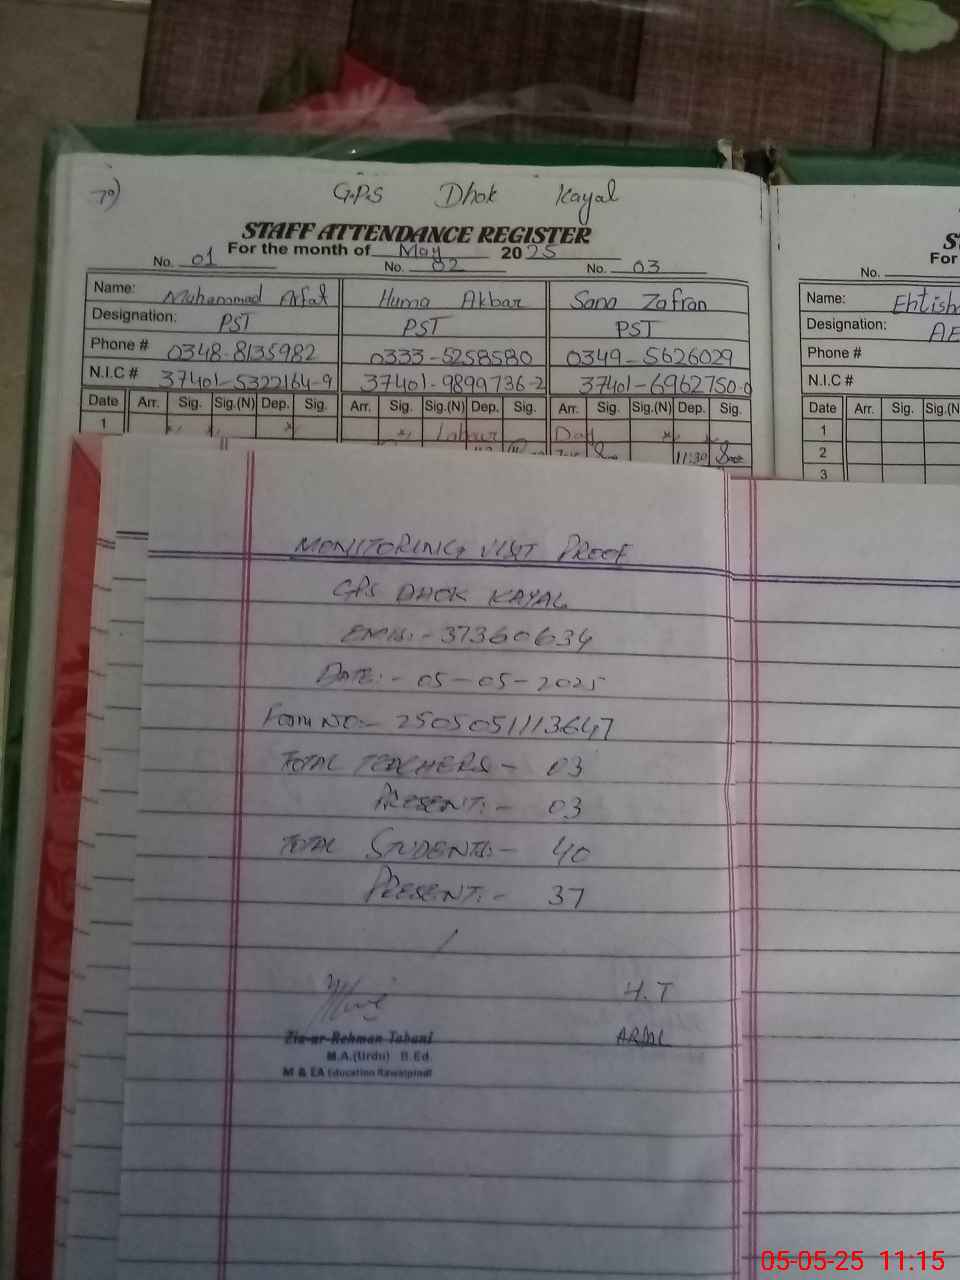 G.P.S Dhok Kayal
STAFF ATTENDANCE REGISTER
For the month of May 2025
No. 01 No. 02 No. 03
Name: Muhammad Arfat Huma Akbar Sana Zafran
Designation: PST PST PST
Phone # 0348-8135982 0333-5258580 0349-5626029
N.I.C # 37401-5322164-9 37401-9899736-2 37401-6962750-0
Date Arr. Sig. Sig.(N) Dep. Sig. Arr. Sig. Sig.(N) Dep. Sig. Arr. Sig. Sig.(N) Dep. Sig.
1 Labour Day
11:30
For
No.
Name:
Designation:
Phone #
N.I.C #
Date Arr. Sig.
1
2
3
MONITORING VISIT PROOF
GPS DHOK KAYAL
EMIS:- 37360634
DATE:- 05-05-2025
Form NO:- 2505051113647
TOTAL TEACHERS - 03
PRESENT:- 03
TOTAL STUDENTS:- 40
PRESENT:- 37
H.T
Zia-ur-Rehman Tabani
M.A.(Urdu) B.Ed.
M & EA Education Rawalpindi
05-05-25 11:15